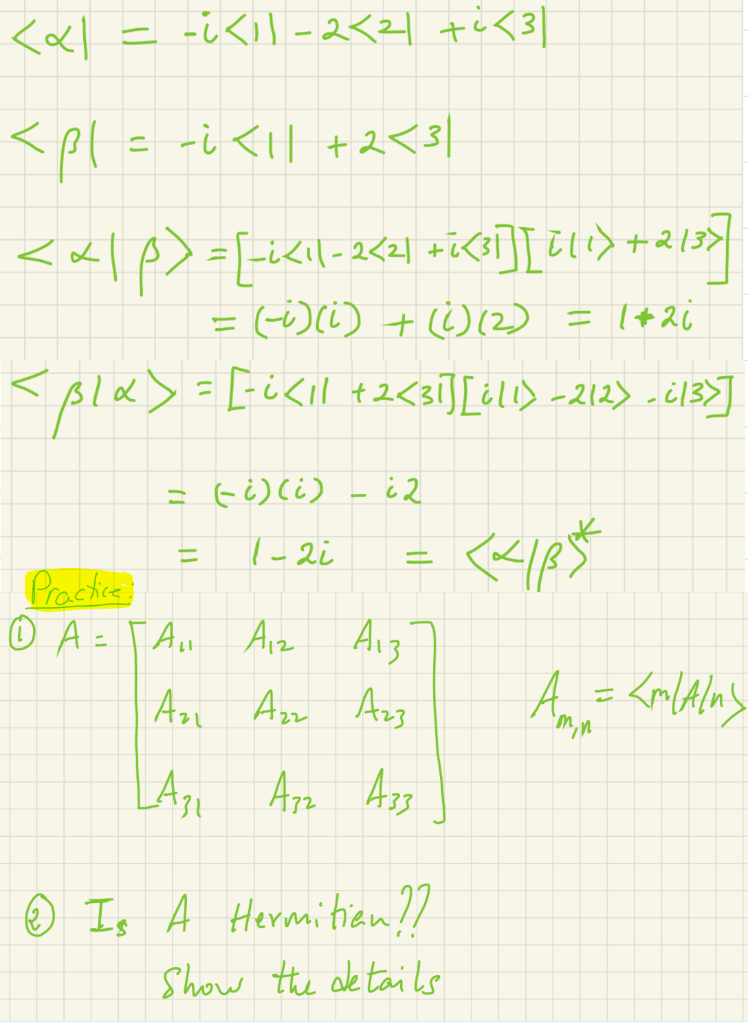 <α| = -i<1| - 2<2| + i<3|
<β| = -i<1| + 2<3|
<α|β> = [-i<1| - 2<2| + i<3|][i|1> + 2|3>]
= (-i)(i) + (i)(2) = 1+2i
<β|α> = [-i<1| + 2<3|][i|1> - 2|2> - i|3>]
= (-i)(i) - i2
= 1 - 2i = <α|β>*
Practice:
① A = [A₁₁ A₁₂ A₁₃
A₂₁ A₂₂ A₂₃ Aₘ,ₙ = <m|A|n>
A₃₁ A₃₂ A₃₃]
② Is A Hermitian??
Show the details